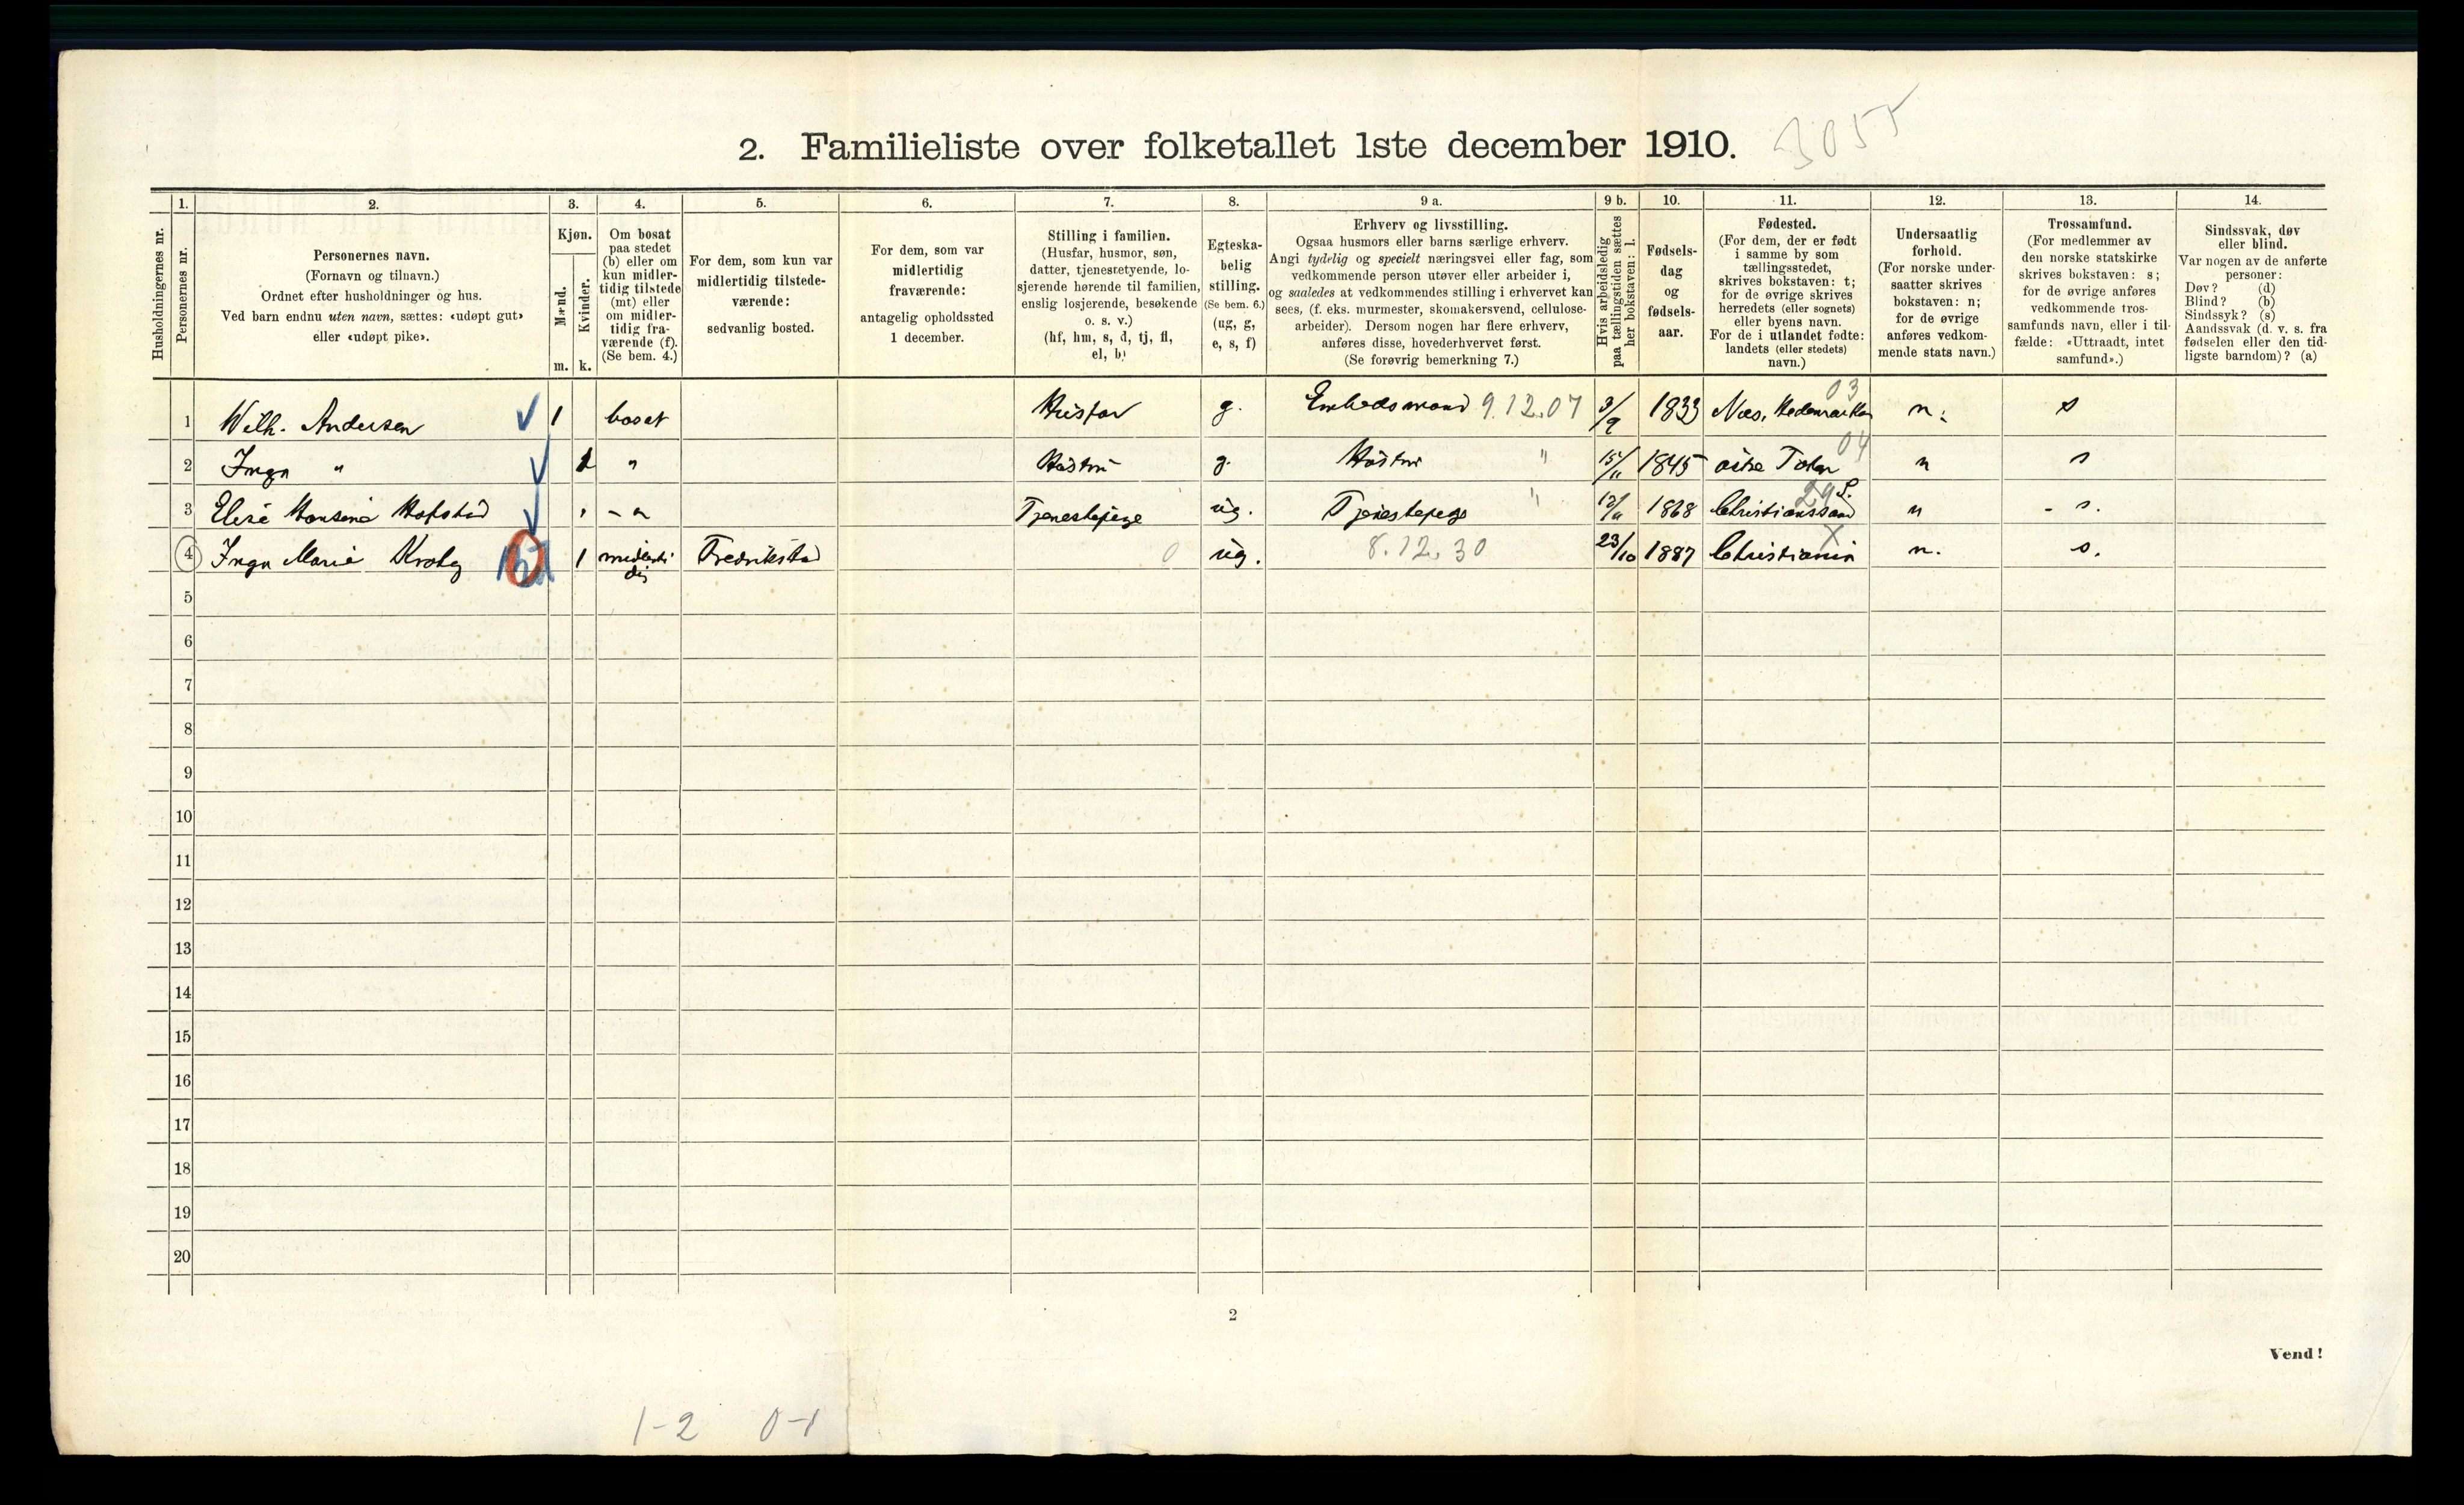 2. Familieliste over folketallet 1ste december 1910.
3055
Husholdningernes nr.
1.
Personernes nr.
2.
Personernes navn.
(Fornavn og tilnavn.)
Ordnet efter husholdninger og hus.
Ved barn endnu uten navn, sættes: «udøpt gut»
eller «udøpt pike».
3.
Kjøn.
Mænd.
m.
Kvinder.
k.
4.
Om bosat
paa stedet
(b) eller om
kun midler-
tidig tilstede
(mt) eller
om midler-
tidig fra-
værende (f).
(Se bem. 4.)
5.
For dem, som kun var
midlertidig tilstede-
værende:
sedvanlig bosted.
6.
For dem, som var
midlertidig
fraværende:
antagelig opholdssted
1 december.
7.
Stilling i familien.
(Husfar, husmor, søn,
datter, tjenestetyende, lo-
sjerende hørende til familien,
enslig losjerende, besøkende
o. s. v.)
(hf, hm, s, d, tj, fl,
el, b)
8.
Egteska-
belig
stilling.
(Se bem. 6.)
(ug, g,
e, s, f)
9 a.
Erhverv og livsstilling.
Ogsaa husmors eller barns særlige erhverv.
Angi tydelig og specielt næringsvei eller fag, som
vedkommende person utøver eller arbeider i,
og saaledes at vedkommendes stilling i erhvervet kan
sees, (f. eks. murmester, skomakersvend, cellulose-
arbeider). Dersom nogen har flere erhverv,
anføres disse, hovederhvervet først.
(Se forøvrig bemerkning 7.)
9 b.
Hvis arbeidsledig
paa tællingstiden sættes
her bokstaven: l.
10.
Fødsels-
dag
og
fødsels-
aar.
11.
Fødested.
(For dem, der er født
i samme by som
tællingsstedet,
skrives bokstaven: t;
for de øvrige skrives
herredets (eller sognets)
eller byens navn.
For de i utlandet fødte:
landets (eller stedets)
navn.)
12.
Undersaatlig
forhold.
(For norske under-
saatter skrives
bokstaven: n;
for de øvrige
anføres vedkom-
mende stats navn.)
13.
Trossamfund.
(For medlemmer av
den norske statskirke
skrives bokstaven: s;
for de øvrige anføres
vedkommende tros-
samfunds navn, eller i til-
fælde: «Uttraadt, intet
samfund».)
14.
Sindssvak, døv
eller blind.
Var nogen av de anførte
personer:
Døv? (d)
Blind? (b)
Sindssyk? (s)
Aandssvak (d. v. s. fra
fødselen eller den tid-
ligste barndom)? (a)
1 Wilh. Andersen 1 bosat Husfar g. Embedsmand 9.12.07 3/9 1833 Næs, Hedemarken 03 n. s
2 Inga " 1 " Hustru g. Hustru " 15/11 1845 østre Toten 04 n s
3 Elise Hansine Hofstad 1 - " Tjenestepige ug. Tjenestepige " 12/11 1868 Christianssand S. 29 n - s.
4 Inga Marie Kroby 1 midlerti dig Fredrikstad 0 ug. 8.12.30 23/10 1887 Christiania X n. s.
5
6
7
8
9
10
11
12
13
14
15
16
17
18
19
20
2
Vend!
1-2 0-1